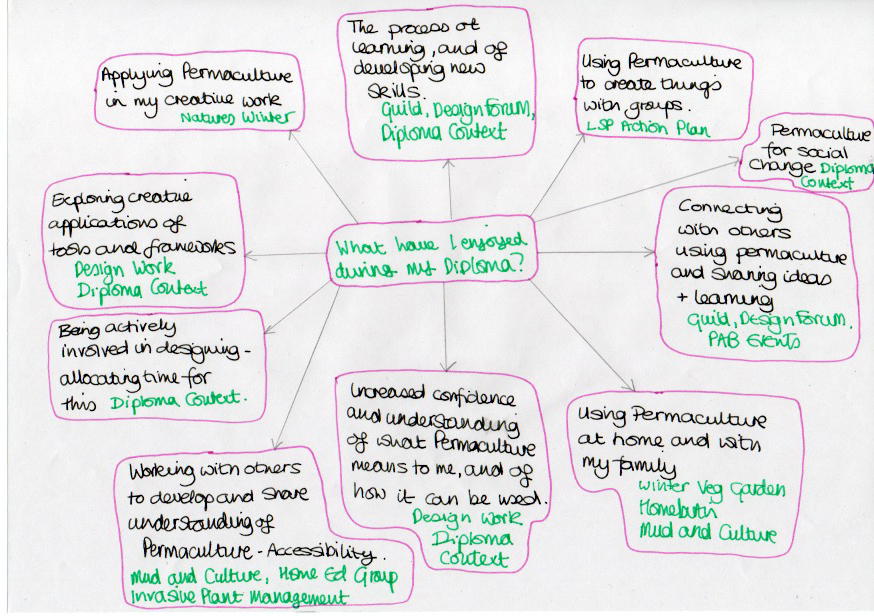 The process of
learning, and of
developing new
skills.
Guild, Design Forum,
Diploma Context
Applying Permaculture
in my creative work
Natures Winter
Using Permaculture
to create things
with groups.
LSP Action Plan
Permaculture
for social
change Diploma
Context
Exploring creative
applications of
tools and frameworks
Design Work
Diploma Context
What have I enjoyed
during my Diploma?
Connecting
with others
using permaculture
and sharing ideas
+ learning
Guild, Design Forum.
PAB Events
Being actively
involved in designing -
allocating time for
this Diploma Context.
Working with others
to develop and share
understanding of
Permaculture - Accessibility.
Mud and Culture, Home Ed Group
Invasive Plant Management
Increased confidence
and understanding
of what Permaculture
means to me, and of
how it can be used.
Design Work
Diploma
Context
Using Permaculture
at home and with
my family
Winter Veg Garden
Homebirth
Mud and Culture